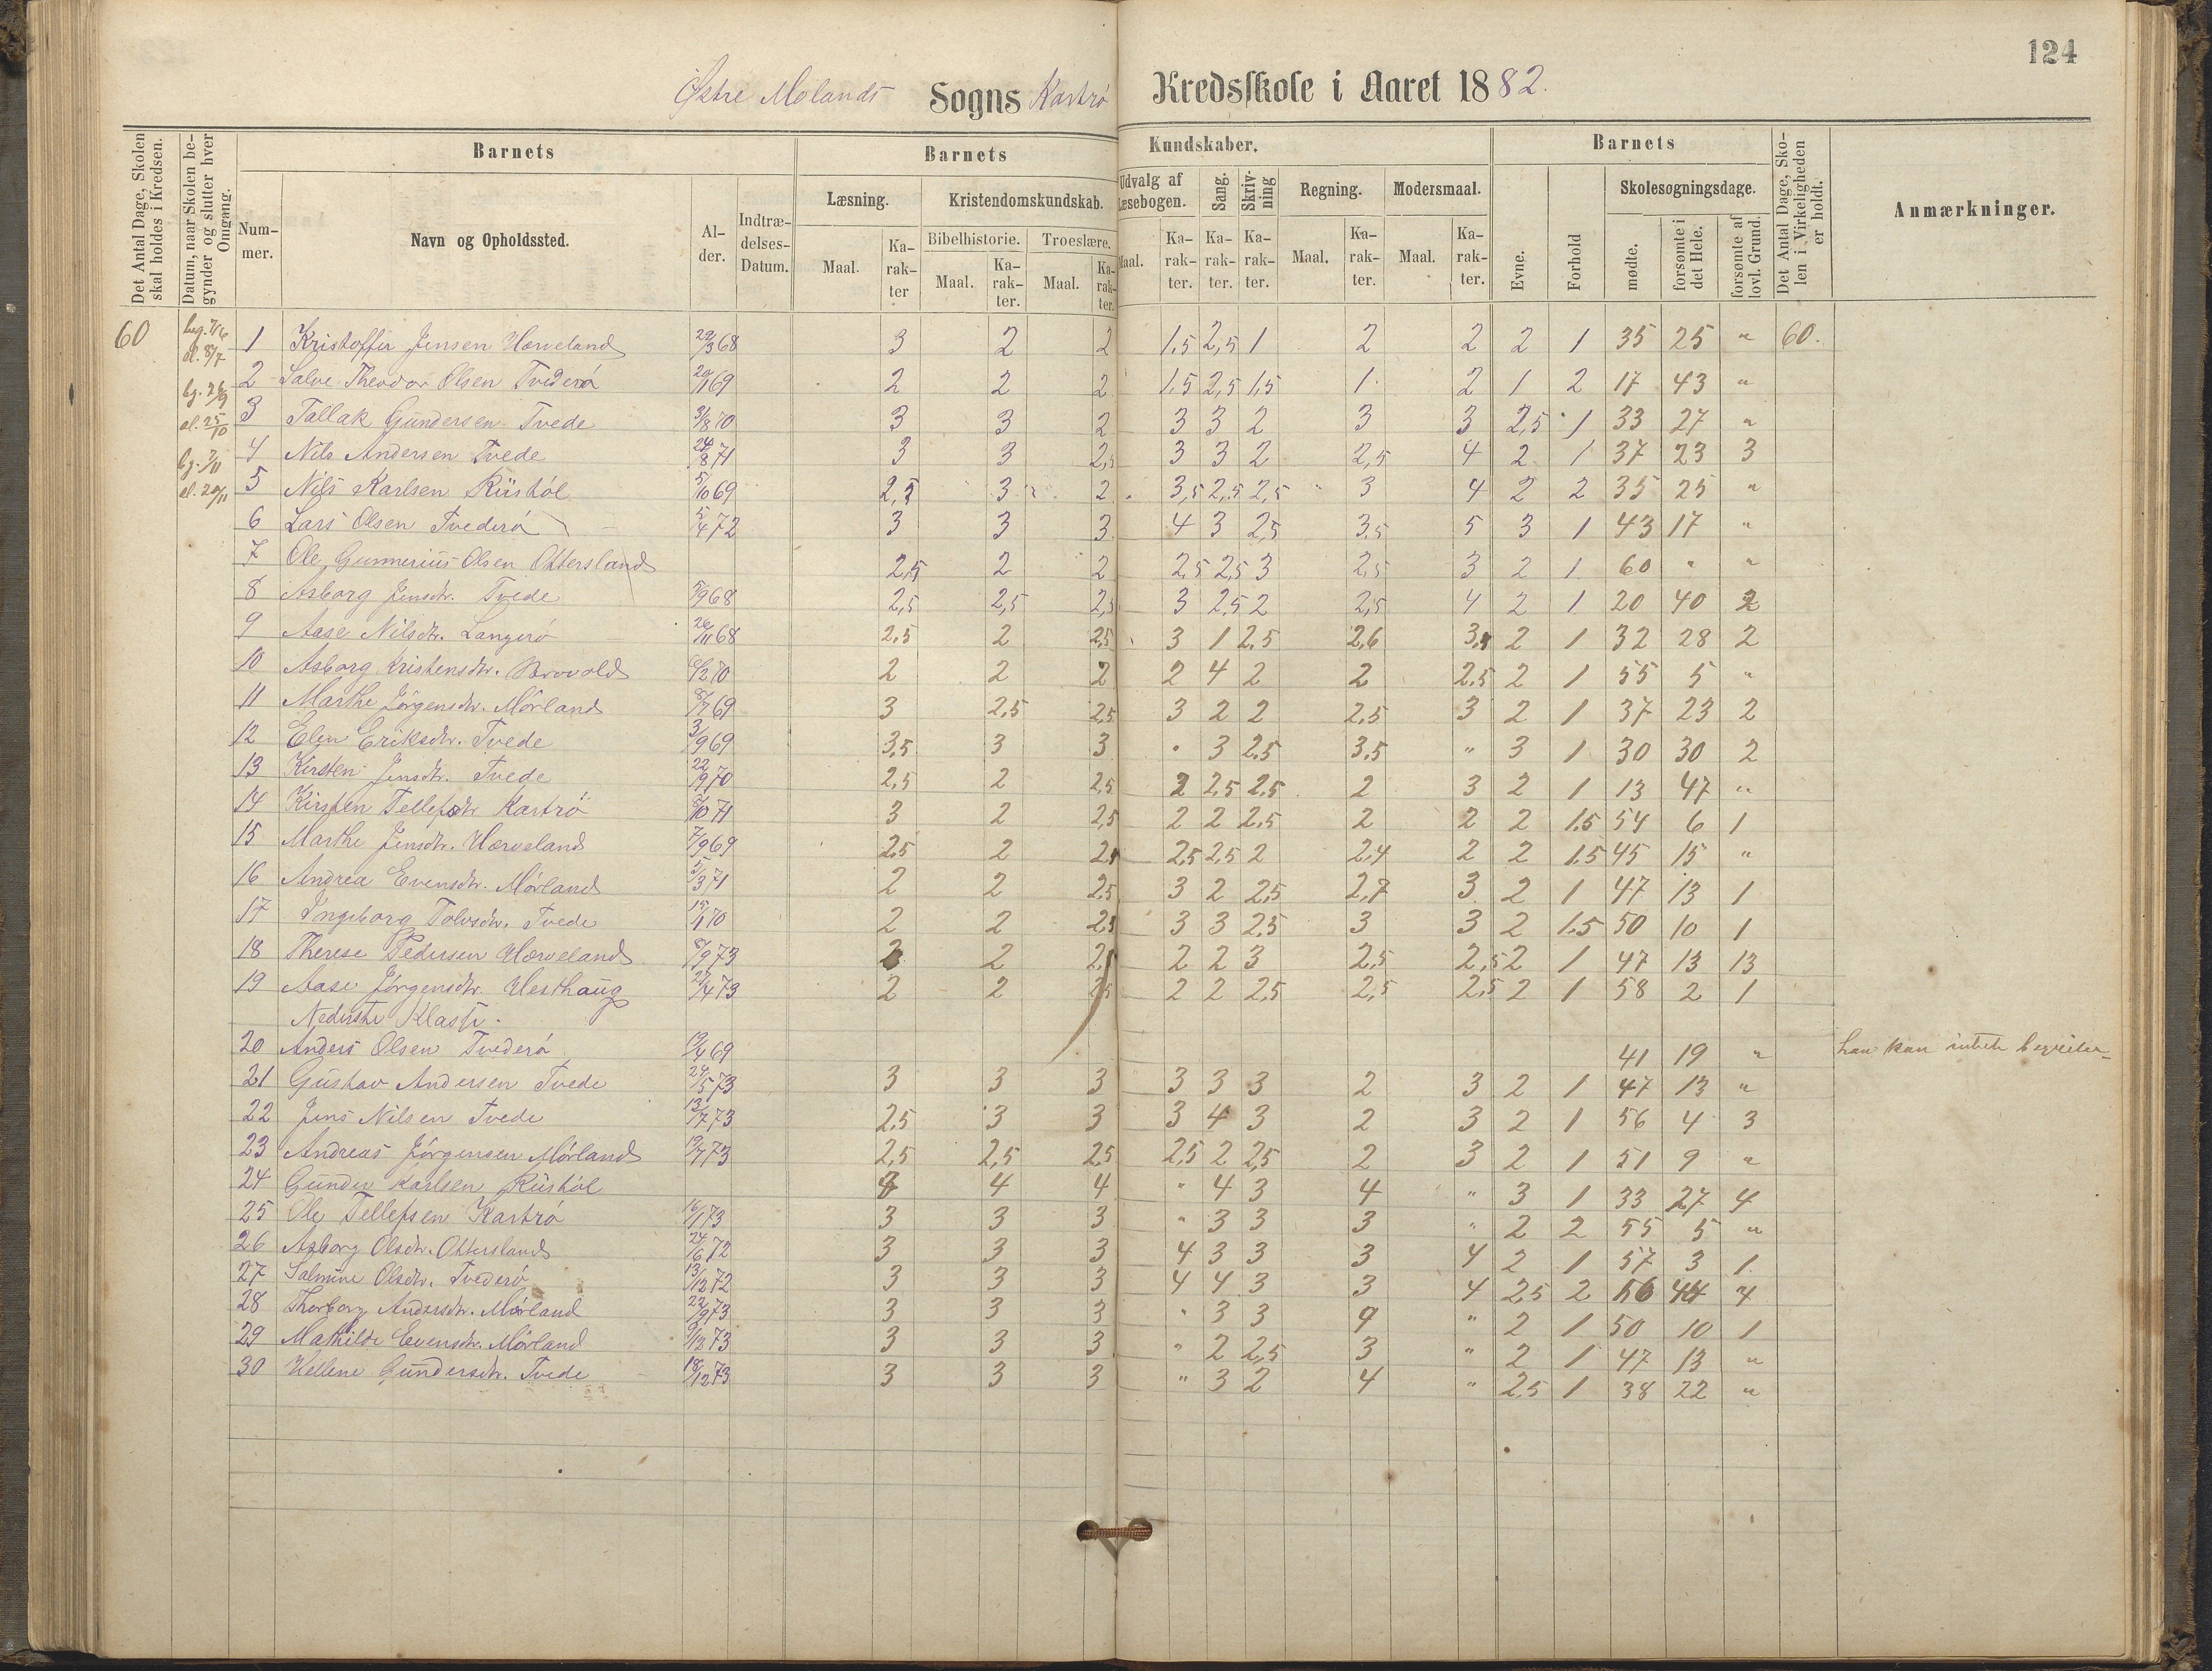 124
Østre Molands Sogns Kastrø Kredsskole i Aaret 1882.
Det Antal Dage, Skolen skal holdes i Kredsen.
Datum, naar Skolen begynder og slutter hver Omgang.
Barnets
Nummer.
Navn og Opholdssted.
Alder.
Indtrædelses-Datum.
Barnets Kundskaber.
Læsning.
Maal.
Karakter
Kristendomskundskab.
Bibelhistorie.
Maal.
Karakter.
Troeslære.
Maal.
Karakter.
Udvalg af Læsebogen.
Maal.
Karakter.
Sang.
Karakter.
Skrivning
Karakter.
Regning.
Maal.
Karakter.
Modersmaal.
Maal.
Karakter.
Barnets
Evne.
Forhold
Skolesøgningsdage.
mødte.
forsømte i det Hele.
forsømte af lovl. Grund.
Det Antal Dage, Skolen i Virkeligheden er holdt.
Anmærkninger.
60 1 Kristoffer Jensen Værveland 29/3 68 3 2 2 1.5 2,5 1 2 2 2 1 35 25 " 60.
2 Salve Theodor Olsen Tvederø 20/1 69 2 2 2 1.5 2,5 1,5 1 2 1 2 17 43 "
3 Tallak Gundersen Tvede 3/8 70 3 3 2 3 3 2 3 3 2,5 1 33 27 "
4 Nils Andersen Tvede 24/8 71 3 3 2,5 3 3 2 2,5 4 2 1 37 23 3
5 Nils Karlsen Riishøl 5/10 69 2,5 3 2 3,5 2,5 2,5 3 4 2 2 35 25 "
6 Lars Olsen Tvederø 5/4 72 3 3 3 4 3 2,5 3.5 5 3 1 43 17 "
7 Ole Gunnerius Olsen Ottersland 2,5 2 2 2.5 2,5 3 2,5 3 2 1 60 " "
8 Asborg Jensdtr. Tvede 5/9 68 2,5 2,5 2,5 3 2.5 2 2,5 4 2 1 20 40 2
9 Aase Nilsdtr. Langerø 26/11 68 2.5 2 2,5 3 1 2.5 2,6 2 1 32 28 2
10 Asborg Kristensdtr. 6/2 70 2 2 2 2 4 2 2 2.5 2 1 55 5 "
11 Marthe Jørgensdtr. Mørland 8/7 69 3 2,5 2,5 3 2 2 2,5 3 2 1 37 23 2
12 Elen Eriksdtr. Tvede 3/9 69 3,5 3 3 " 3 2.5 3.5 " 3 1 30 30 2
13 Kirsten Jensdtr. Tvede 22/9 70 2,5 2 2,5 2 2,5 2.5 2 3 2 1 13 47 "
14 Kirsten Tellefsdtr Kastrø 8/10 71 3 2 2,5 2 2 2,5 2 2 2 1.5 54 6 1
15 Marthe Jensdtr. Værveland 7/9 69 2,5 2 2,5 2,5 2 2,4 2 2 1.5 45 15 "
16 Andrea Evensdtr. Mørland 5/3 71 2 2 2,5 3 2 2,5 2,7 3 2 1 47 13 1
17 Ingeborg Tolvsdtr. Tvede 2 2 2,5 3 3 2,5 3 3 2 1.5 50 10 1
18 Therese Pedersen Værveland 8/9 73 2 2 2 2 3 2,5 2,5 2 1 47 13 13
19 Aase Jørgensdtr. Vesthaug 27/4 73 2 2 2,5 2 2 2,5 2,5 2,5 2 1 58 2 1
Nederste Klasse.
20 Anders Olsen Tvederø 13/4 69 41 19 " han kan intet
21 Gustav Andersen Tvede 24/5 73 3 3 3 3 3 3 2 3 2 1 47 13 "
22 Jens Nilsen Tvede 13/7 73 2,5 3 3 3 4 3 2 3 2 1 56 4 3
23 Andreas Jørgensen Mørland 19/7 73 2,5 2,5 2,5 2,5 2 2,5 2 3 2 1 51 9 "
24 Gunder Karlsen Riishøl 4 4 " 4 3 4 " 3 1 33 27 4
25 Ole Tellefsen Kastrø 16/1 73 3 3 3 " 3 3 3 " 2 2 55 5 "
26 Asborg Olsdtr. Ottersland 24/6 72 3 3 3 4 3 3 3 4 2 1 57 3 1
27 Salmine Olsdtr. Tvederø 13/12 72 3 3 3 4 4 3 3 4 2,5 2
28 Thorborg Andersdtr. Mørland 22/9 73 3 3 3 " 3 3 " 2 1 50 10 1
29 Mathilde Evensdtr. Mørland 9/12 73 3 3 3 " 2 2,5 3 " 2 1 47 13 "
30 Hellene Gundersdtr. Tvede 18/12 73 3 3 3 " 3 2 4 " 2,5 1 38 22 "